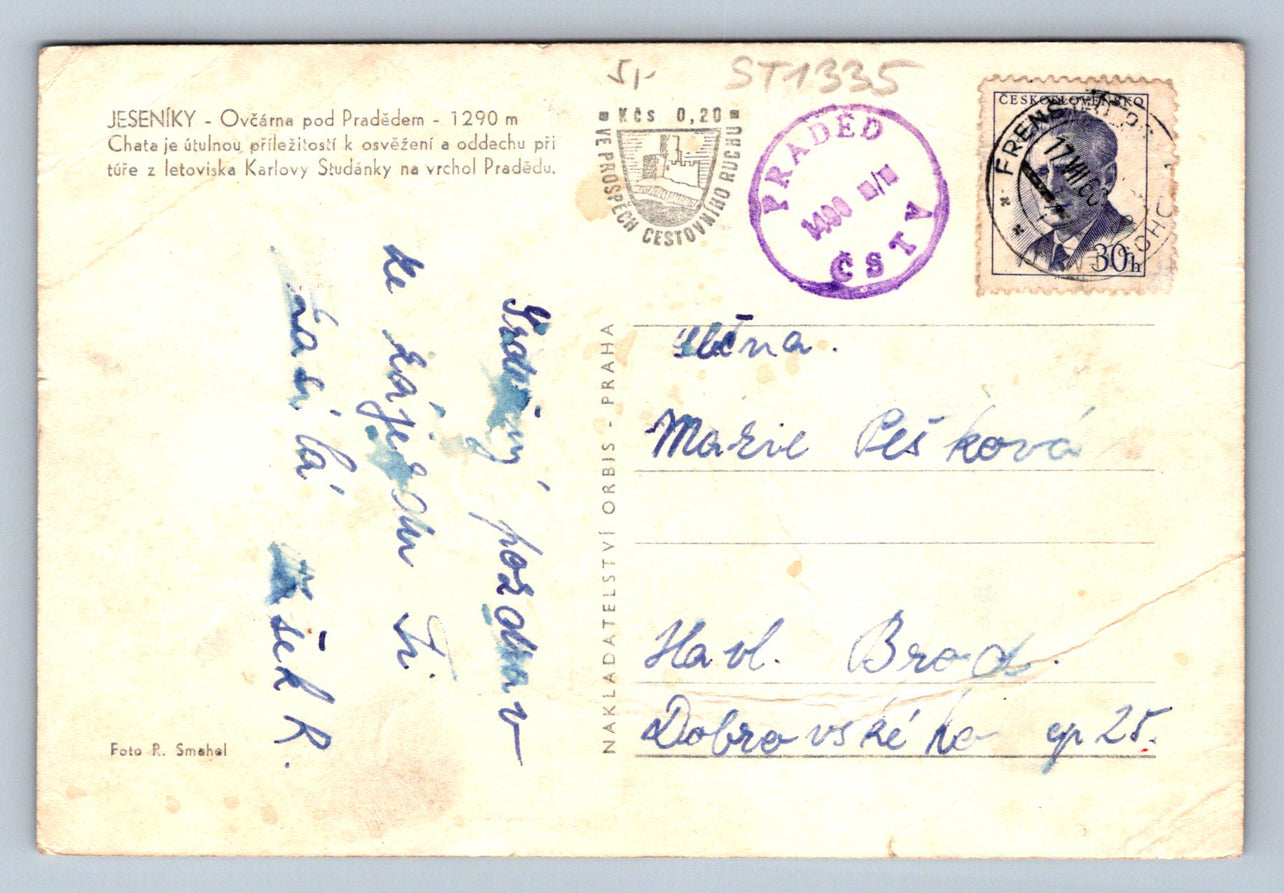 5,-
ST1335
JESENÍKY - Ovčárna pod Pradědem - 1290 m
Chata je útulnou příležitostí k osvěžení a oddechu při
túře z letoviska Karlovy Studánky na vrchol Pradědu.
Kčs 0,20
VE PROSPĚCH CESTOVNÍHO RUCHU
PRADĚD
1490 m/m
ČSTV
ČESKOSLOVENSKO
30h
FRENŠ
17.VIII.60
Srdečný pozdrav
ze zájezdu Ti
zasílá
R.
NAKLADATELSTVÍ ORBIS - PRAHA
Marie Pešková
Havl. Brod.
Dobrovského čp 25.
Foto R. Smahel